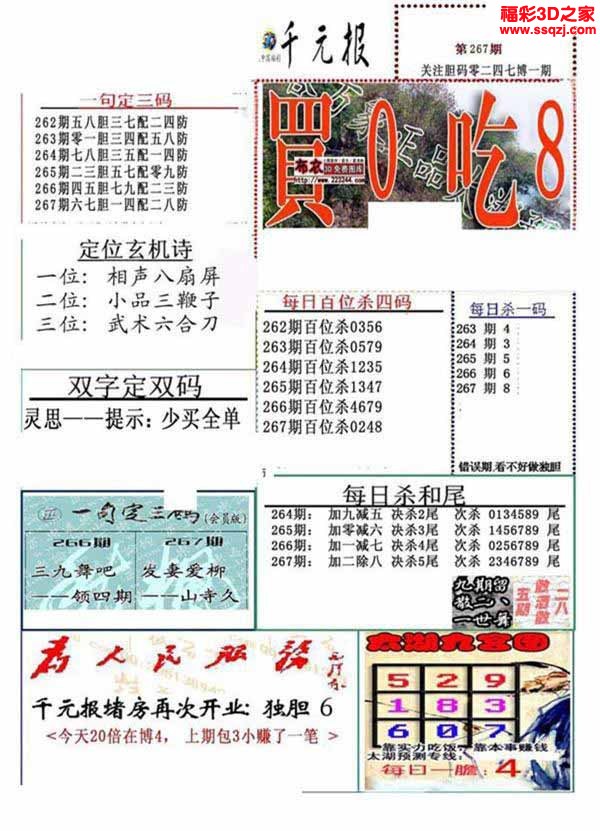 福彩3D之家
www.ssqzj.com
千元报
第267期
关注胆码零二四七博一期
一句定三码
262期五八胆三七配二四防
263期零一胆三四配五八防
264期七八胆三五配一四防
265期二三胆五七配零九防
266期四五胆七九配二三防
267期六七胆一四配二八防
買0吃8
布衣
3D免费图库
www.223244.com
定位玄机诗
一位: 相声八扇屏
二位: 小品三鞭子
三位: 武术六合刀
每日百位杀四码
262期百位杀0356
263期百位杀0579
264期百位杀1235
265期百位杀1347
266期百位杀4679
267期百位杀0248
每日杀一码
263 期 4
264 期 3
265 期 5
266 期 6
267 期 8
错误期,看不好做独胆
双字定双码
灵思——提示: 少买全单
每日杀和尾
264期: 加九减五 决杀2尾 次杀 0134589 尾
265期: 加零减六 决杀3尾 次杀 1456789 尾
266期: 加一减七 决杀4尾 次杀 0256789 尾
267期: 加二除八 决杀5尾 次杀 2346789 尾
一句定三码(会员版)
266期
三九舞吧
——领四期
267期
发妻爱柳
——山寺久
九期留
散二、
一世舞
为人民服务
千元报堵房再次开业: 独胆 6
<今天20倍在博4, 上期包3小赚了一笔>
太湖九宫图
5 2 9
1 8 3
6 0 7
靠实力吃饭 靠本事赚钱
太湖预测专线:
每日一胆: 4